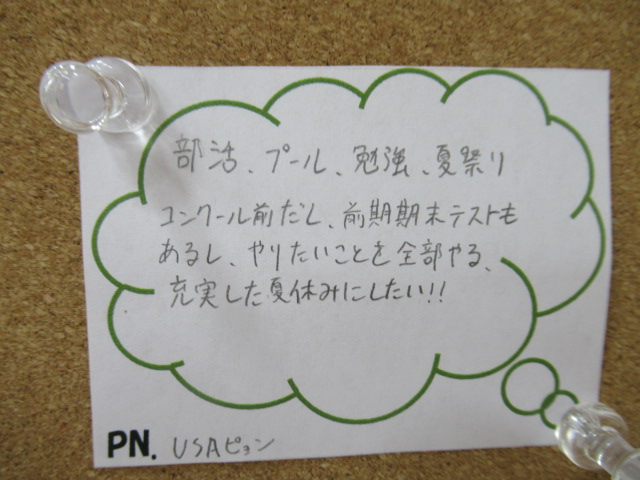 部活、プール、勉強、夏祭り
コンクール前だし、前期期末テストも
あるし、やりたいことを全部やる、
充実した夏休みにしたい!!
PN. USAピョン